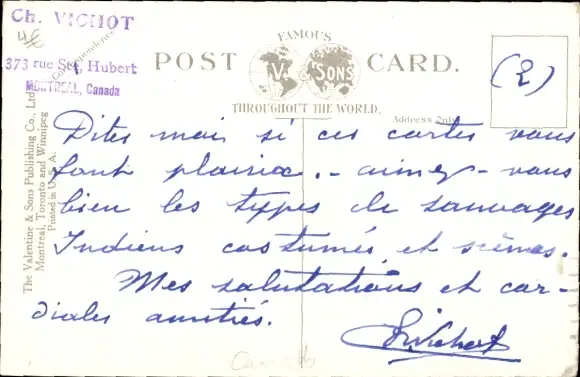 Ch. VICHOT
4€
373 rue St. Hubert
MONTREAL, Canada
Correspondence
FAMOUS
POST CARD.
V. & SONS
THROUGHOUT THE WORLD.
Address Only
(2)
The Valentine & Sons Publishing Co., Ltd.
Montreal, Toronto and Winnipeg
Printed in U. S. A.
Dites moi si ces cartes vous
font plaisir. - aimez-vous
bien les types de sauvages
Indiens costumés, et scènes.
Mes salutations et cor-
diales amitiés.
ChVichot
Canada